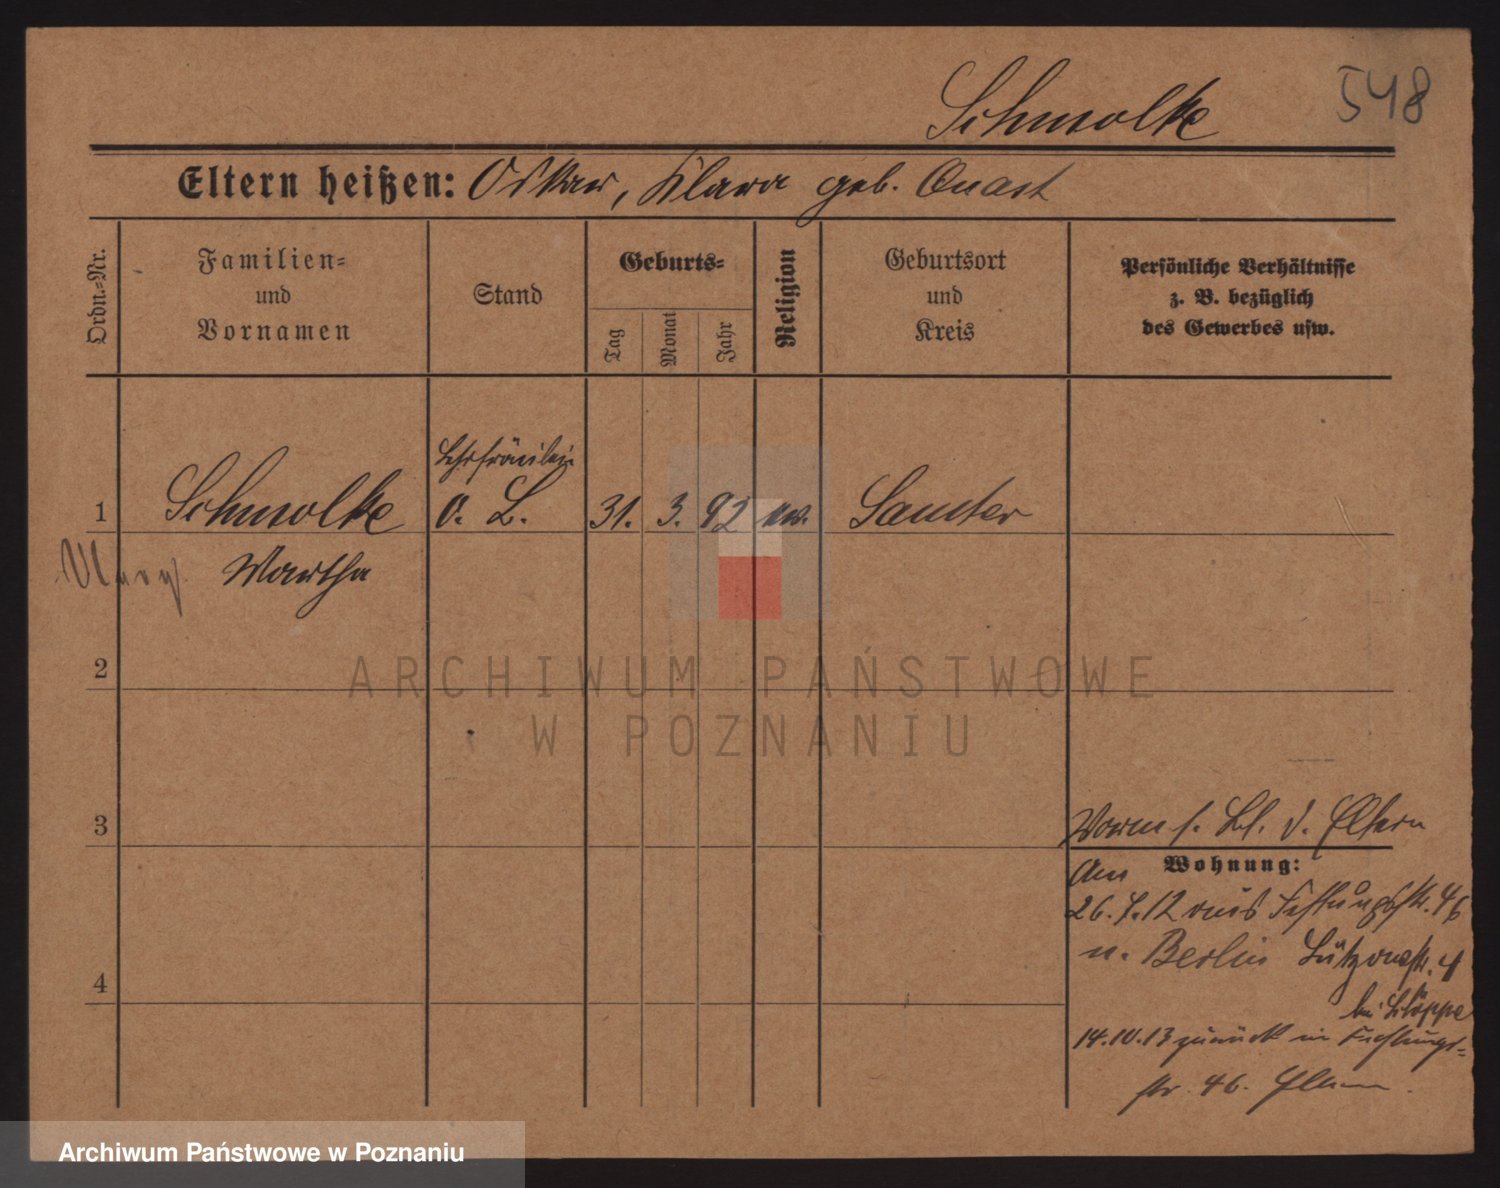 Schmolke
548
Eltern heißen: Oskar, Klara geb. Quast
Ordn.-Nr.
Familien-
und
Vornamen
Stand
Geburts-
Tag
Monat
Jahr
Religion
Geburtsort
und
Kreis
Persönliche Verhältnisse
z. B. bezüglich
des Gewerbes usw.
1 Schmolke
Lehrfräulein
o. L. 31. 3. 92 ev. Samter
Martha
2
3
4
ARCHIWUM PAŃSTWOWE
W POZNANIU
Vorm s. Bl. d. Eltern
Wohnung:
Am
26.9.12 aus Festungsstr. 46
n. Berlin Lützowstr. 4
bei
14.10.13 zurück in Festungs-
str. 46. Eltern.
Archiwum Państwowe w Poznaniu